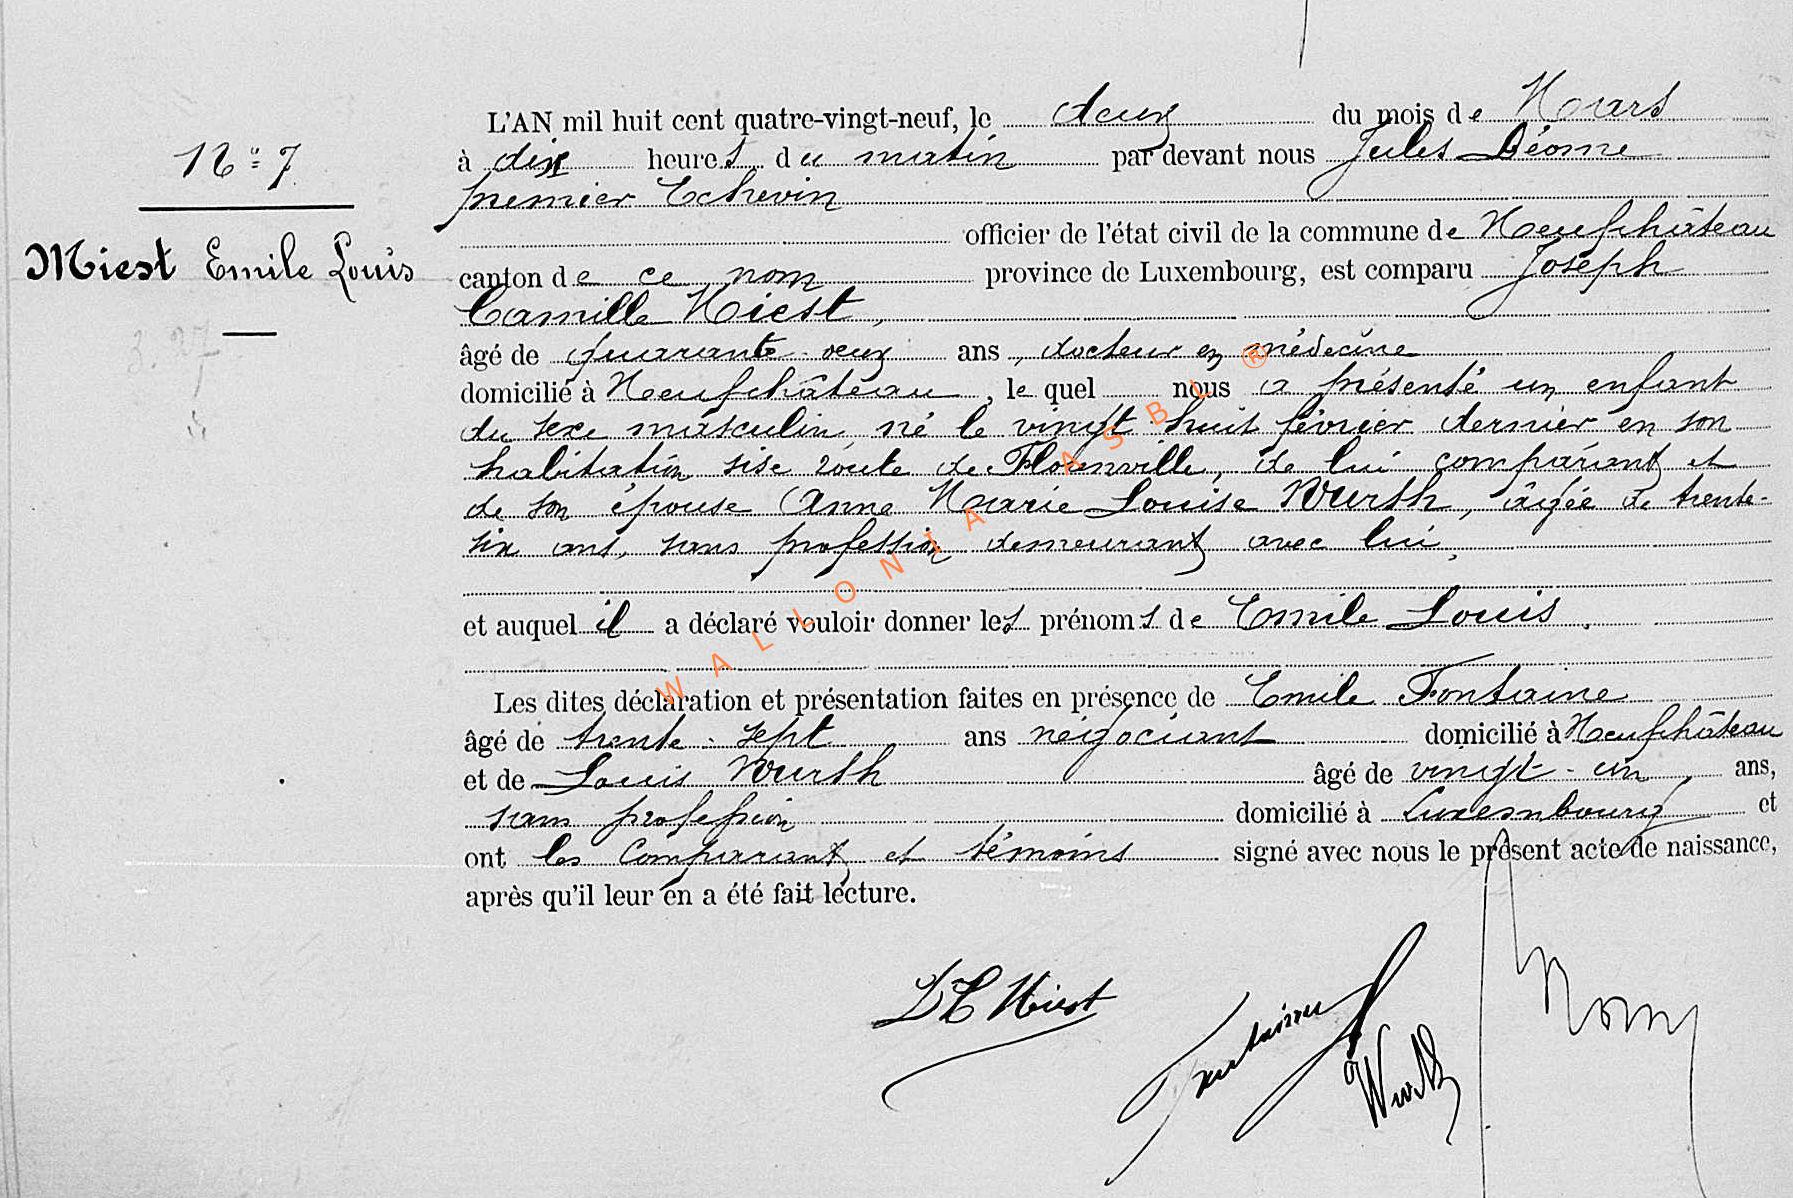 N° 7
Miest Emile Louis
3.27
L'AN mil huit cent quatre-vingt-neuf, le deux du mois de Mars
à dix heures du matin par devant nous Jules Déome
premier Echevin
officier de l'état civil de la commune de Neufchâteau
canton de ce nom province de Luxembourg, est comparu Joseph
Camille Miest,
âgé de quarante-deux ans, docteur en médecine
domicilié à Neufchâteau, le quel nous a présenté un enfant
du sexe masculin, né le vingt huit février dernier en son
habitation sise route de Florenville, de lui comparant et
de son épouse Anne Marie Louise Wurth, âgée de trente-
six ans, sans profession demeurant avec lui,
et auquel il a déclaré vouloir donner les prénoms de Emile Louis.
Les dites déclaration et présentation faites en présence de Emile Fontaine
âgé de trente-sept ans négociant domicilié à Neufchâteau
et de Louis Wurth âgé de vingt-un ans,
sans profession domicilié à Luxembourg et
ont les comparant et témoins signé avec nous le présent acte de naissance,
après qu'il leur en a été fait lecture.
Miest
Fontaine
Wurth
WALLONIA ASBL ®